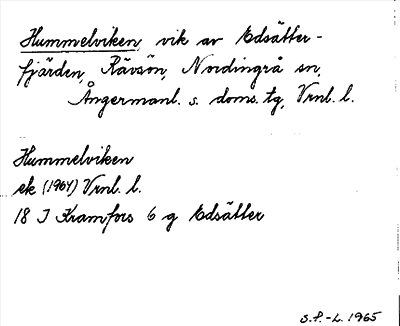 Hummelviken, vik av Edsätter-
fjärden, Rävsön, Nordingrå sn,
Ångermanl. s. doms. tg, Vrnl. l.
Hummelviken
ek (1964) Vrnl. l.
18 I Kramfors 6 g Edsätter
S.P.-L. 1965